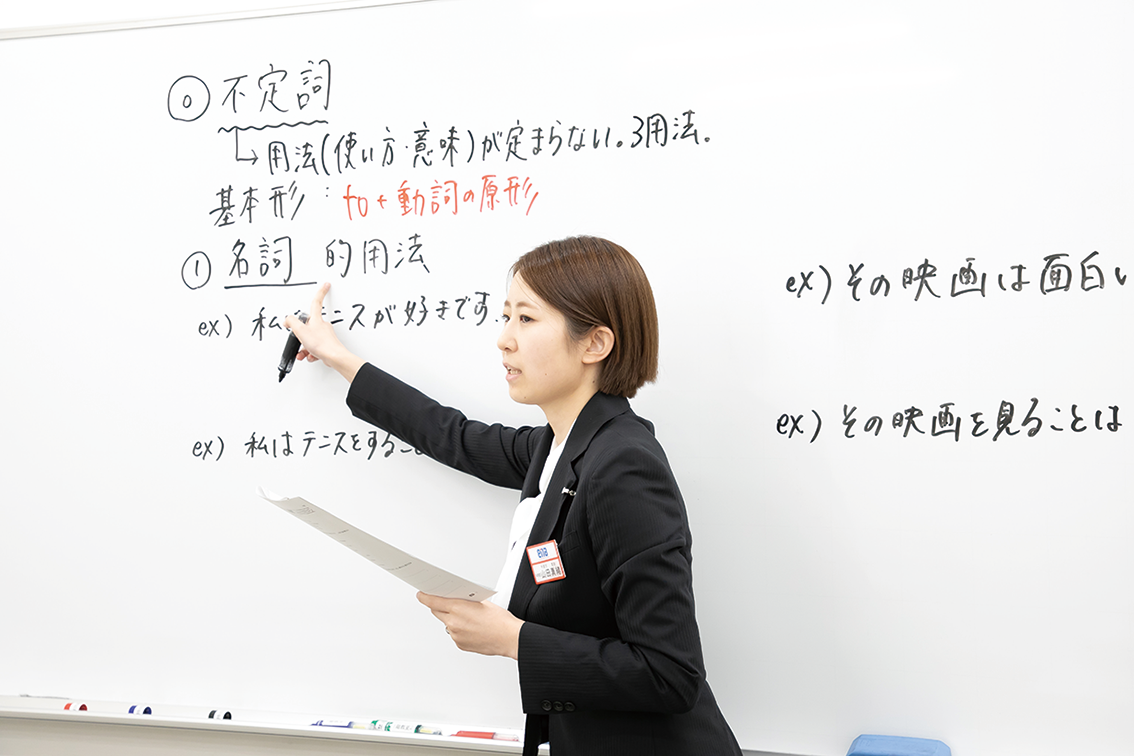 ⓪ 不定詞
↳ 用法(使い方・意味)が定まらない。3用法。
基本形：to+動詞の原形
① 名詞 的用法
ex) 私 テニスが好きです.
ex) 私はテニスをするこ
ex) その映画は面白い
ex) その映画を見ることは
ena
山田